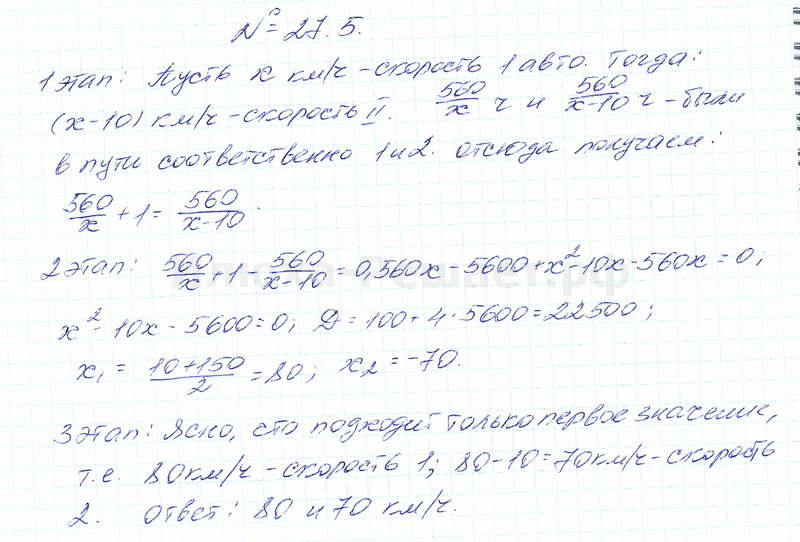 № 27.5.
1 этап: Пусть х км/ч - скорость 1 авто. Тогда:
(х-10) км/ч - скорость II. 560/х ч и 560/х-10 ч - были
в пути соответственно 1 и 2. отсюда получаем:
560/х + 1 = 560/х-10.
2 этап: 560/х + 1 - 560/х-10 = 0, 560х - 5600 + х² - 10х - 560х = 0;
х² - 10х - 5600 = 0; D = 100 + 4·5600 = 22500;
х₁ = 10+150/2 = 80; х₂ = -70.
3 этап: Ясно, сто подходит только первое значение,
т.е. 80 км/ч - скорость 1; 80-10=70 км/ч - скорость
2. ответ: 80 и 70 км/ч.